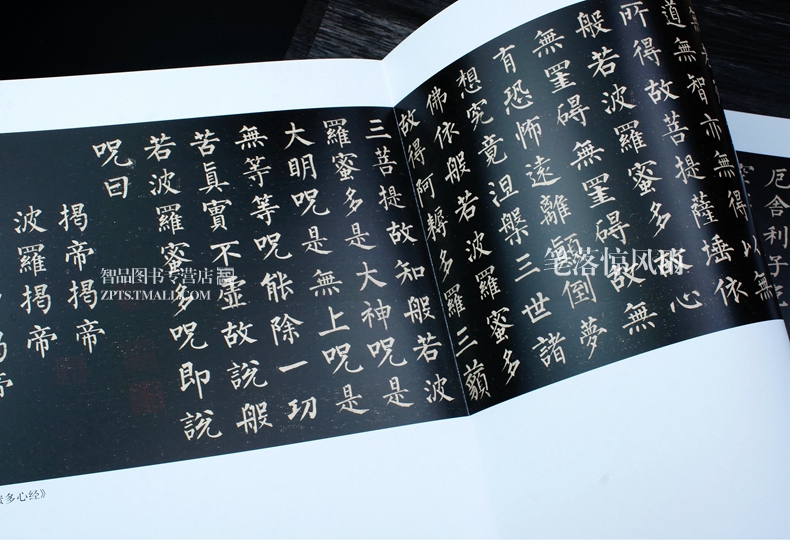 厄舍利子色
道無智亦無得以無
所得故菩提薩埵依
般若波羅蜜多故心
無罣礙無罣礙故無
有恐怖遠離顛倒夢
想究竟涅槃三世諸
佛依般若波羅蜜多
故得阿耨多羅三藐
三菩提故知般若波
羅蜜多是大神呪是
大明呪是無上呪是
無等等呪能除一切
苦真實不虛故說般
若波羅蜜多呪即說
呪曰
揭帝揭帝
波羅揭帝
多心经》
智品图书专营店
ZPTS.TMALL.COM
笔落惊风雨